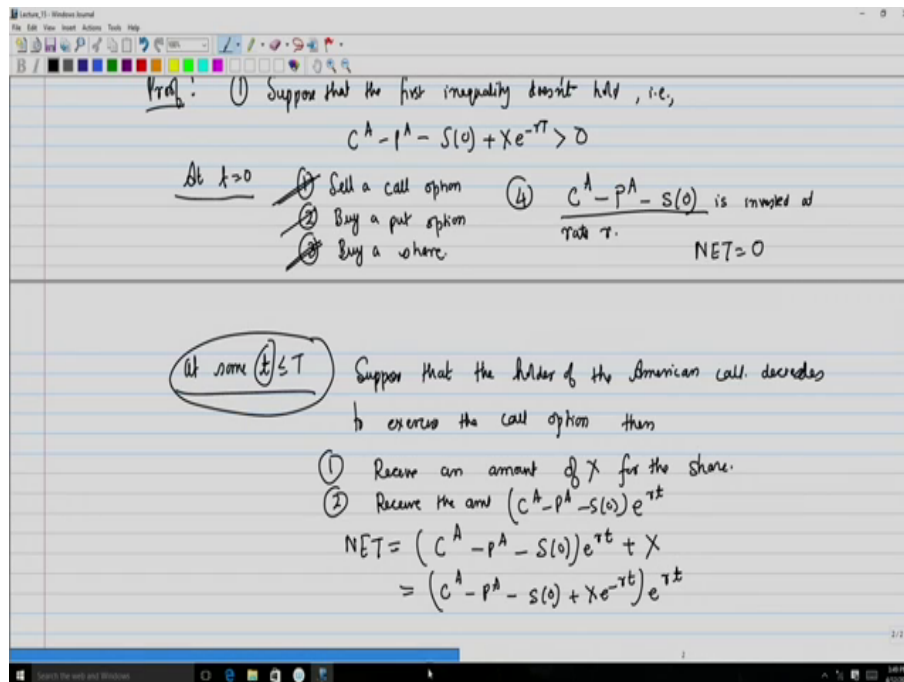 Lecture_15 - Windows Journal
File Edit View Insert Actions Tools Help
Proof: ① Suppose that the first inequality doesn't hold, i.e.,
C^A - P^A - S(0) + Xe^{-rT} > 0
At t=0 ① Sell a call option ④ C^A - P^A - S(0) is invested at
② Buy a put option rate r.
③ Buy a share. NET = 0
At some t ≤ T Suppose that the holder of the American call decides
to exercise the call option then
① Receive an amount of X for the share.
② Receive the amt (C^A - P^A - S(0)) e^{rt}
NET = (C^A - P^A - S(0)) e^{rt} + X
= (C^A - P^A - S(0) + Xe^{-rt}) e^{rt}
Search the web and Windows